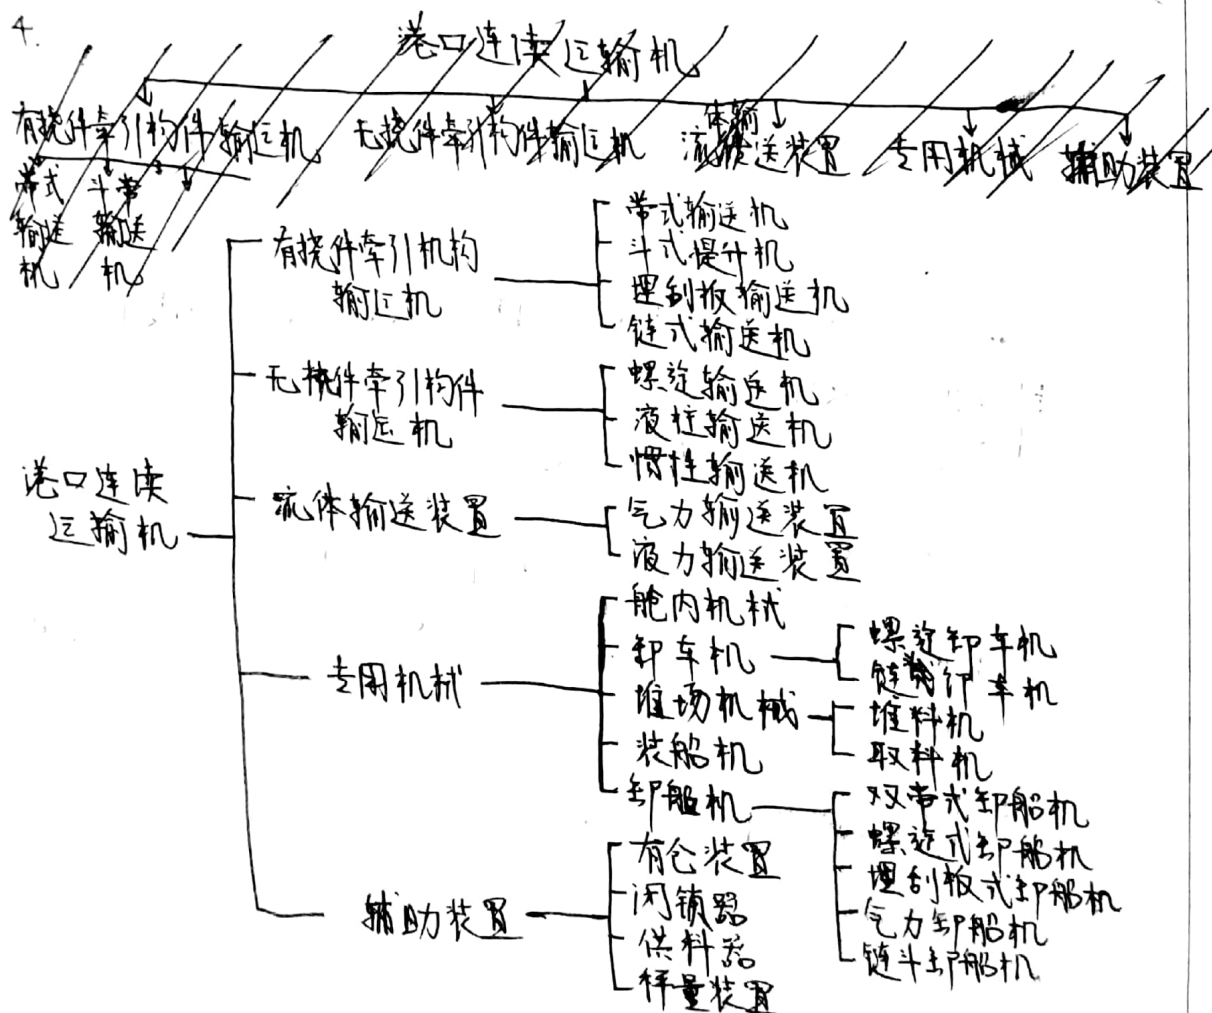 4.
港口连续运输机
有挠件牵引构件输运机
无挠件牵引构件输运机
体输
流送装置
专用机械
辅助装置
带式
输送
机
斗带
输送
机
有挠件牵引机构
输运机
带式输送机
斗式提升机
埋刮板输送机
链式输送机
无挠件牵引构件
输运机
螺旋输送机
液柱输送机
惯性输送机
港口连续
运输机
流体输送装置
气力输送装置
液力输送装置
专用机械
舱内机械
卸车机
螺旋卸车机
链卸车机
堆场机械
堆料机
取料机
装船机
卸船机
双带式卸船机
螺旋式卸船机
埋刮板式卸船机
气力卸船机
链斗卸船机
辅助装置
有仓装置
闭锁器
供料器
秤量装置